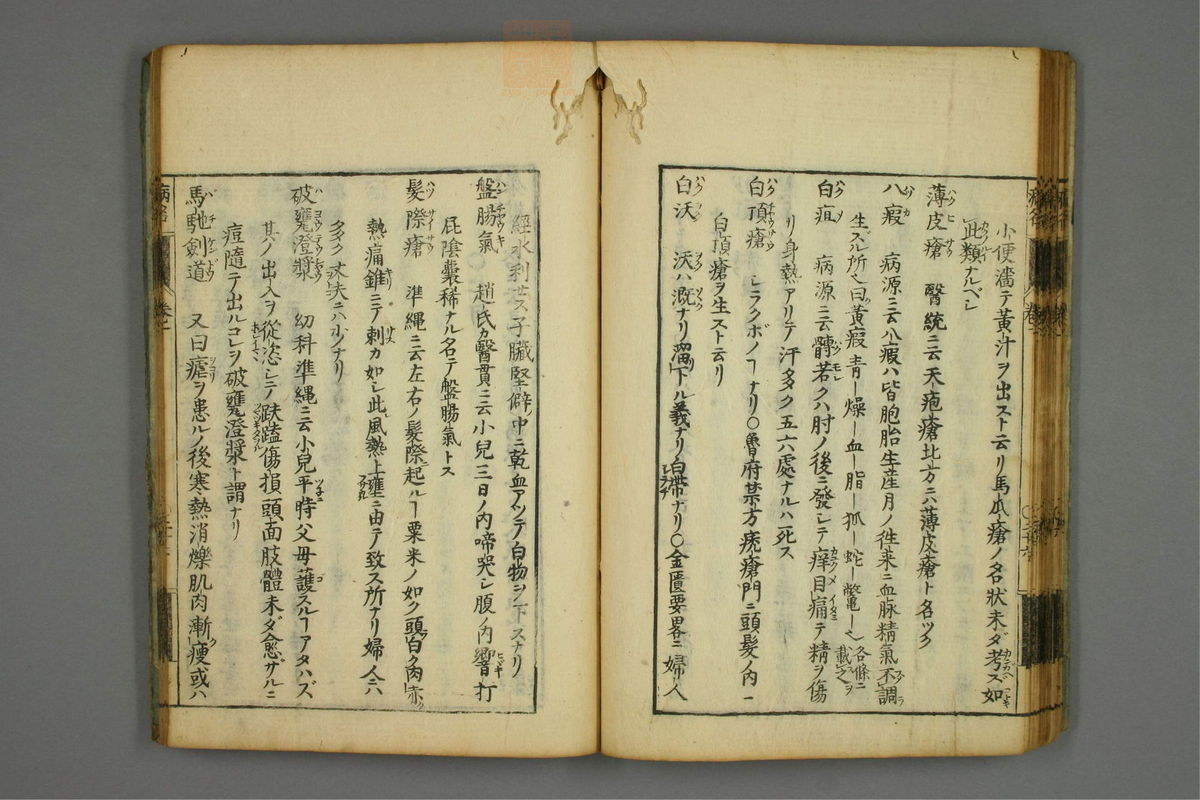 小便濇テ黃汁ヲ出スト云リ馬瓜瘡ノ名狀未ダ考ヘス如
此類ナルベシ
薄皮瘡 醫統ニ云天疱瘡北方ニハ薄皮瘡ト名ツク
八瘕 病源ニ云八瘕ハ皆胞胎生産月ノ徃來ニ血脉精氣不調
生スル所ヘ曰黃瘕青ー燥ー血ー脂ー狐ー蛇ー鱉ー 各條ニ載之
白疽 病源ニ云髆若クハ肘ノ後ニ發シテ痒目痛テ精ヲ傷
リ身熱アリテ汗多ク五六處ナルハ死ス
白頂瘡 シラクボノヿナリ〇魯府禁方疣瘡門ニ頭髮ノ內ニ
白頂瘡ヲ生スト云リ
白沃 沃ハ漑ナリ溜下ル義ナリ白帶ナリ〇金匱要畧ニ婦人
經水利セス子臟堅僻中ニ乾血アツテ白物ヲ下スナリ
盤膓氣 趙氏カ醫貫ニ云小兒三日ノ內啼哭シ腹ノ內響打
屁陰囊稀ナル名テ盤膓氣トス
髮際瘡 準繩ニ云左右ノ髮際起ルヿ粟米ノ如ク頭白ク肉赤ク
熱痛錐ニテ刺カ如シ此風熱上壅ニ由テ致ス所アリ婦人ニ六
多ク丈夫ニハ少ナリ
破甕澄漿 幼科準繩ニ云小兒平時父母護スルヿアタハズ
其ノ出入ヲ從恣シテ趺蹟傷損頭面肢體未ダ愈ザルニ
痘隨テ出ルコレヲ破甕澄漿ト謂ナリ
馬馳劍道 又曰瘧ヲ患ルノ後寒熱消爍肌肉漸瘦或ハ